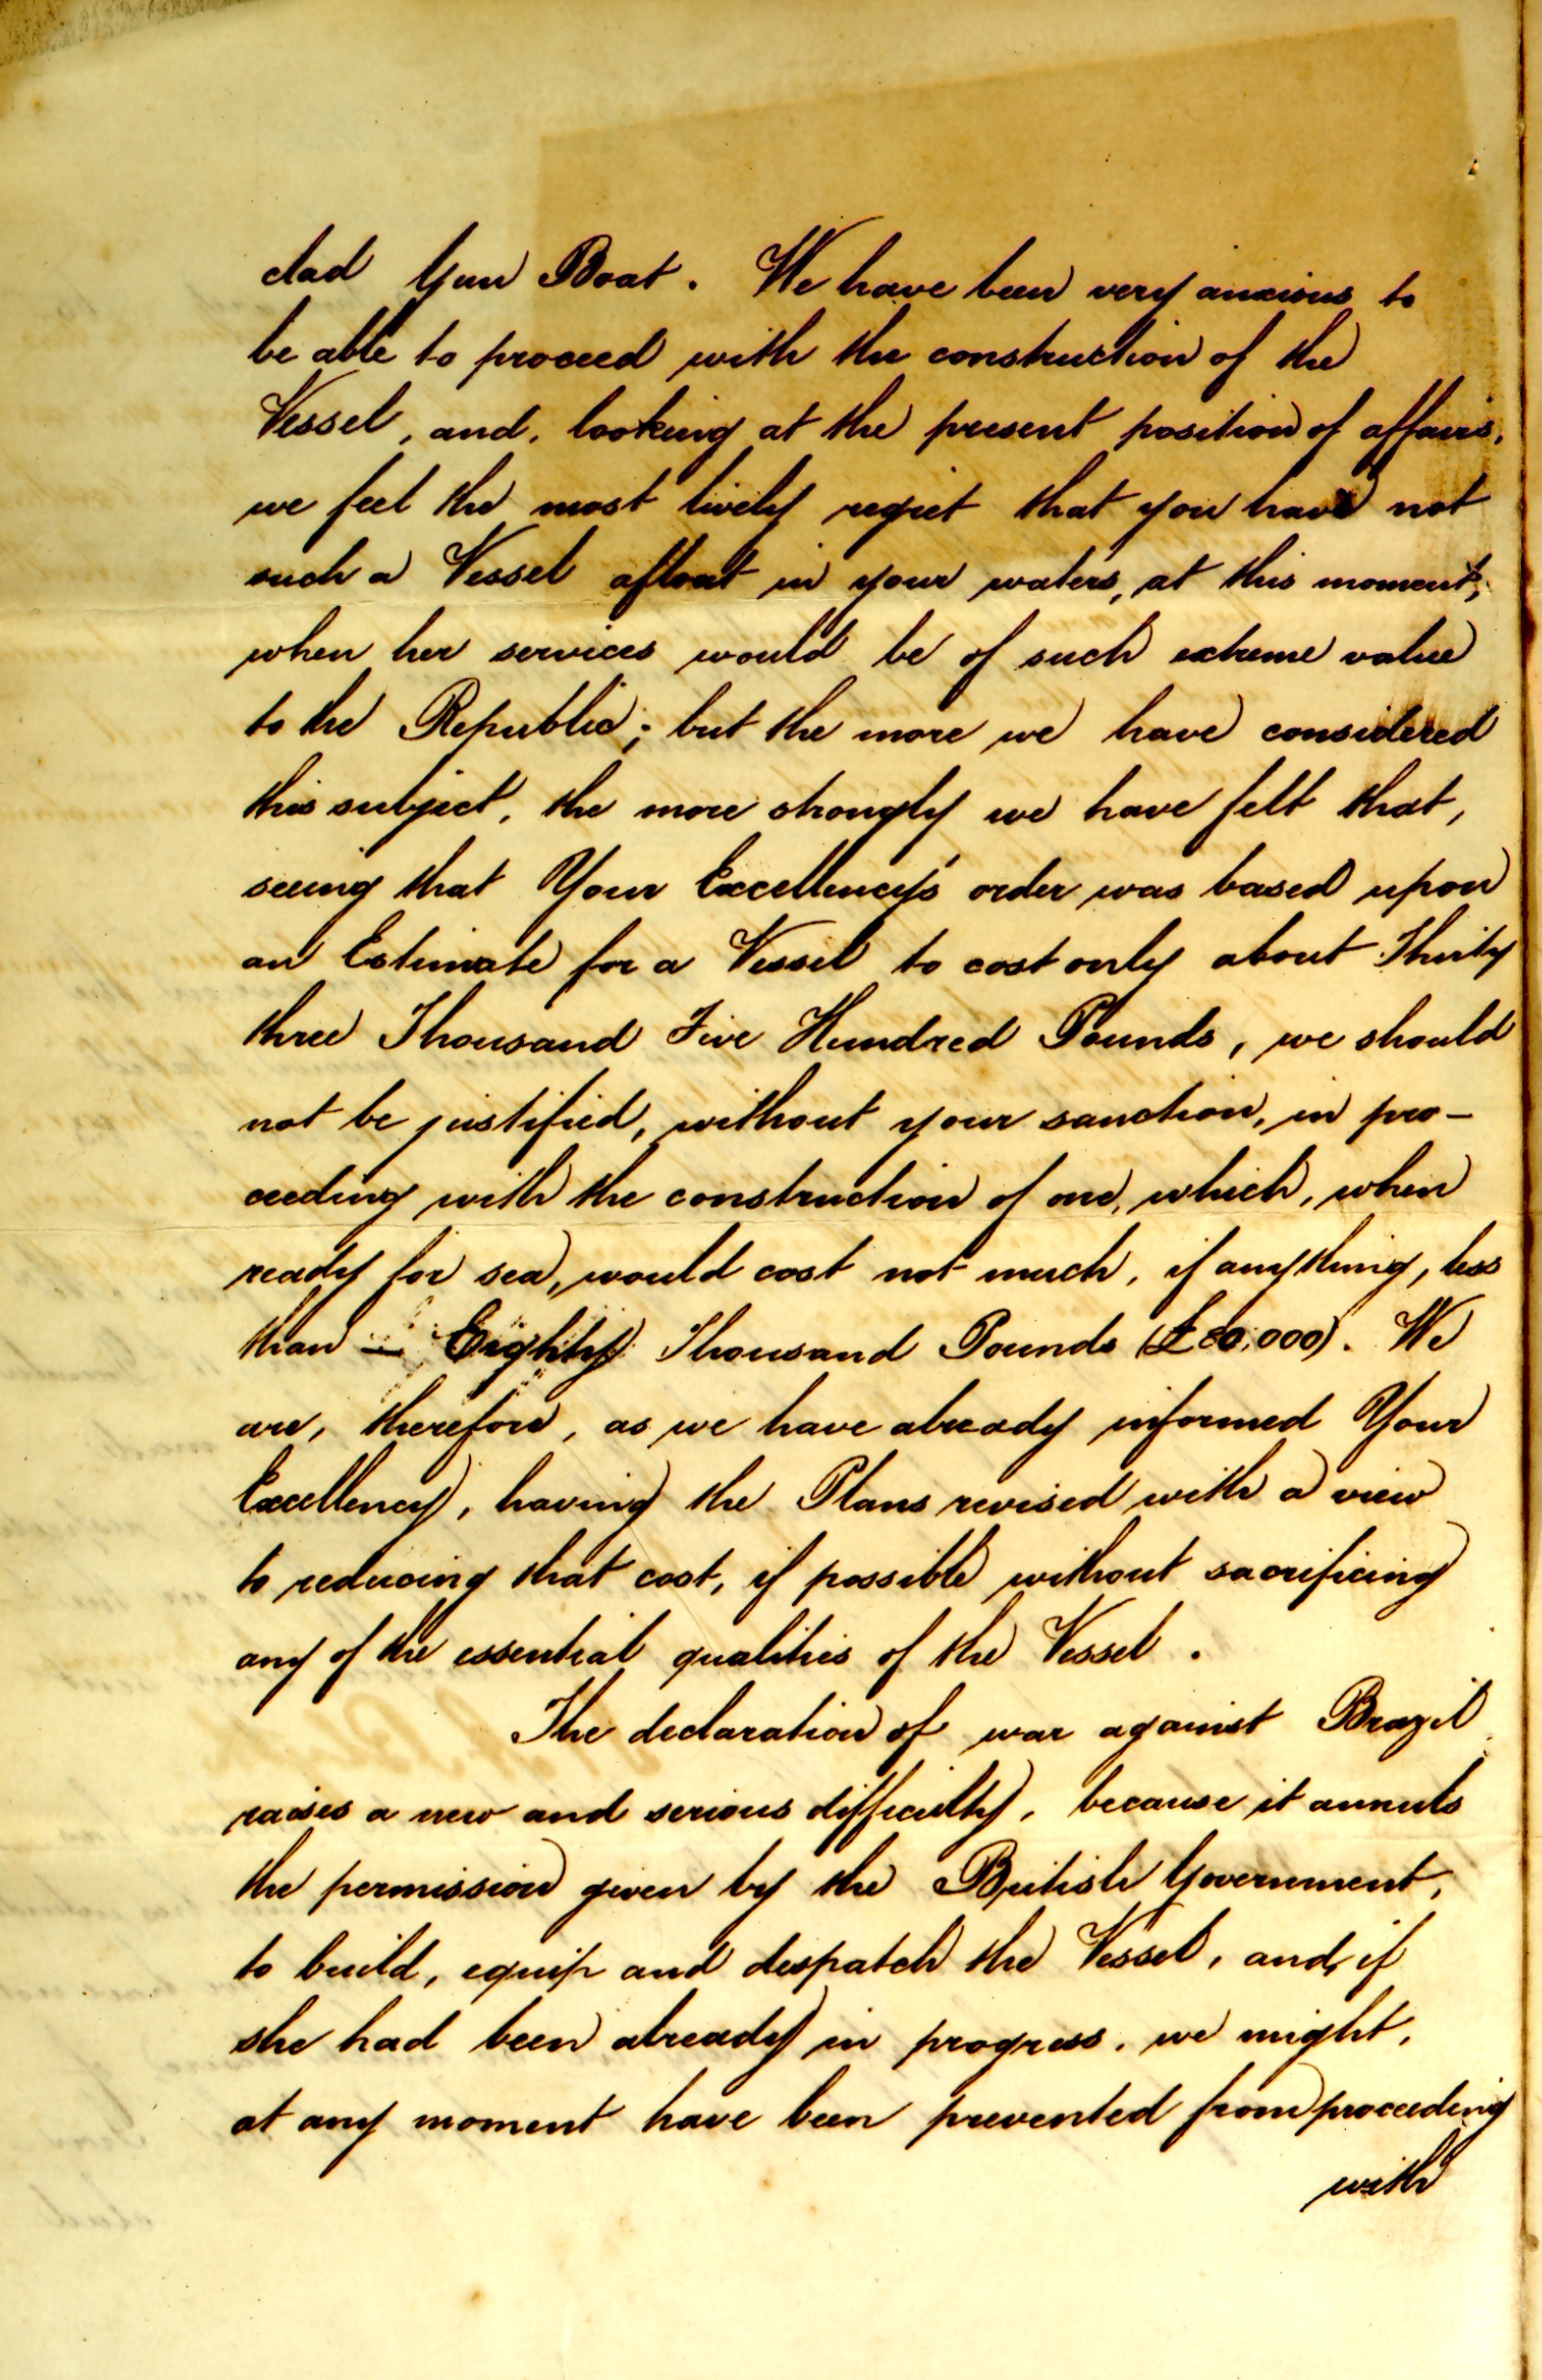 clad Gun Boat. We have been very anxious to
be able to proceed with the construction of the
Vessel, and, looking at the present position of affairs,
we feel the most lively regret that you have not
such a Vessel afloat in your waters, at this moment,
when her services would be of such extreme value
to the Republic; but the more we have considered
this subject, the more strongly we have felt that,
seeing that Your Excellency's order was based upon
an Estimate for a Vessel to cost only about Thirty
three Thousand Five Hundred Pounds, we should
not be justified, without your sanction, in pro-
ceeding with the construction of one, which, when
ready for sea, would cost not much, if anything, less
than — Eighty Thousand Pounds (£80,000). We
are, therefore, as we have already informed Your
Excellency, having the Plans revised with a view
to reducing that cost, if possible without sacrificing
any of the essential qualities of the Vessel.
The declaration of war against Brazil
raises a new and serious difficulty, because it annuls
the permission given by the British Government,
to build, equip and despatch the Vessel, and, if
she had been already in progress, we might,
at any moment have been prevented from proceeding
with